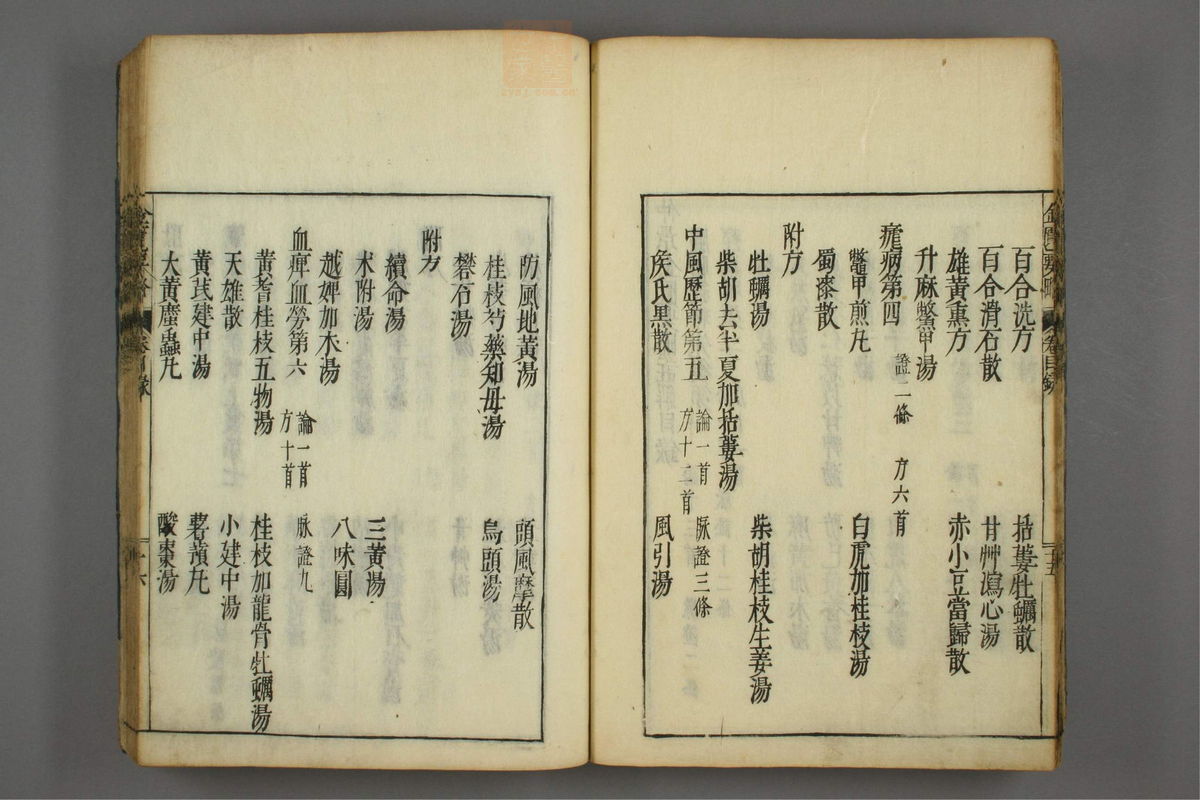 百合洗方 括蔞牡蠣散
百合滑石散 甘艸瀉心湯
雄黃熏方 赤小豆當歸散
升麻鱉甲湯
瘧病第四 證二條 方六首
鱉甲煎丸 白虎加桂枝湯
蜀漆散
附方
牡蠣湯 柴胡桂枝生姜湯
柴胡去半夏加括蔞湯
中風歷節第五 論一首 脉證三條 方十二首
矦氏黑散 風引湯
防風地黃湯 頭風摩散
桂枝芍藥知母湯 烏頭湯
礬石湯
附方
續命湯 三黃湯
朮附湯 八味圓
越婢加朮湯
血痺血勞第六 論一首 脉證九 方十首
黃耆桂枝五物湯 桂枝加龍骨牡蠣湯
天雄散 小建中湯
黃芪建中湯 薯蕷丸
大黃䗪蟲丸 酸棗湯